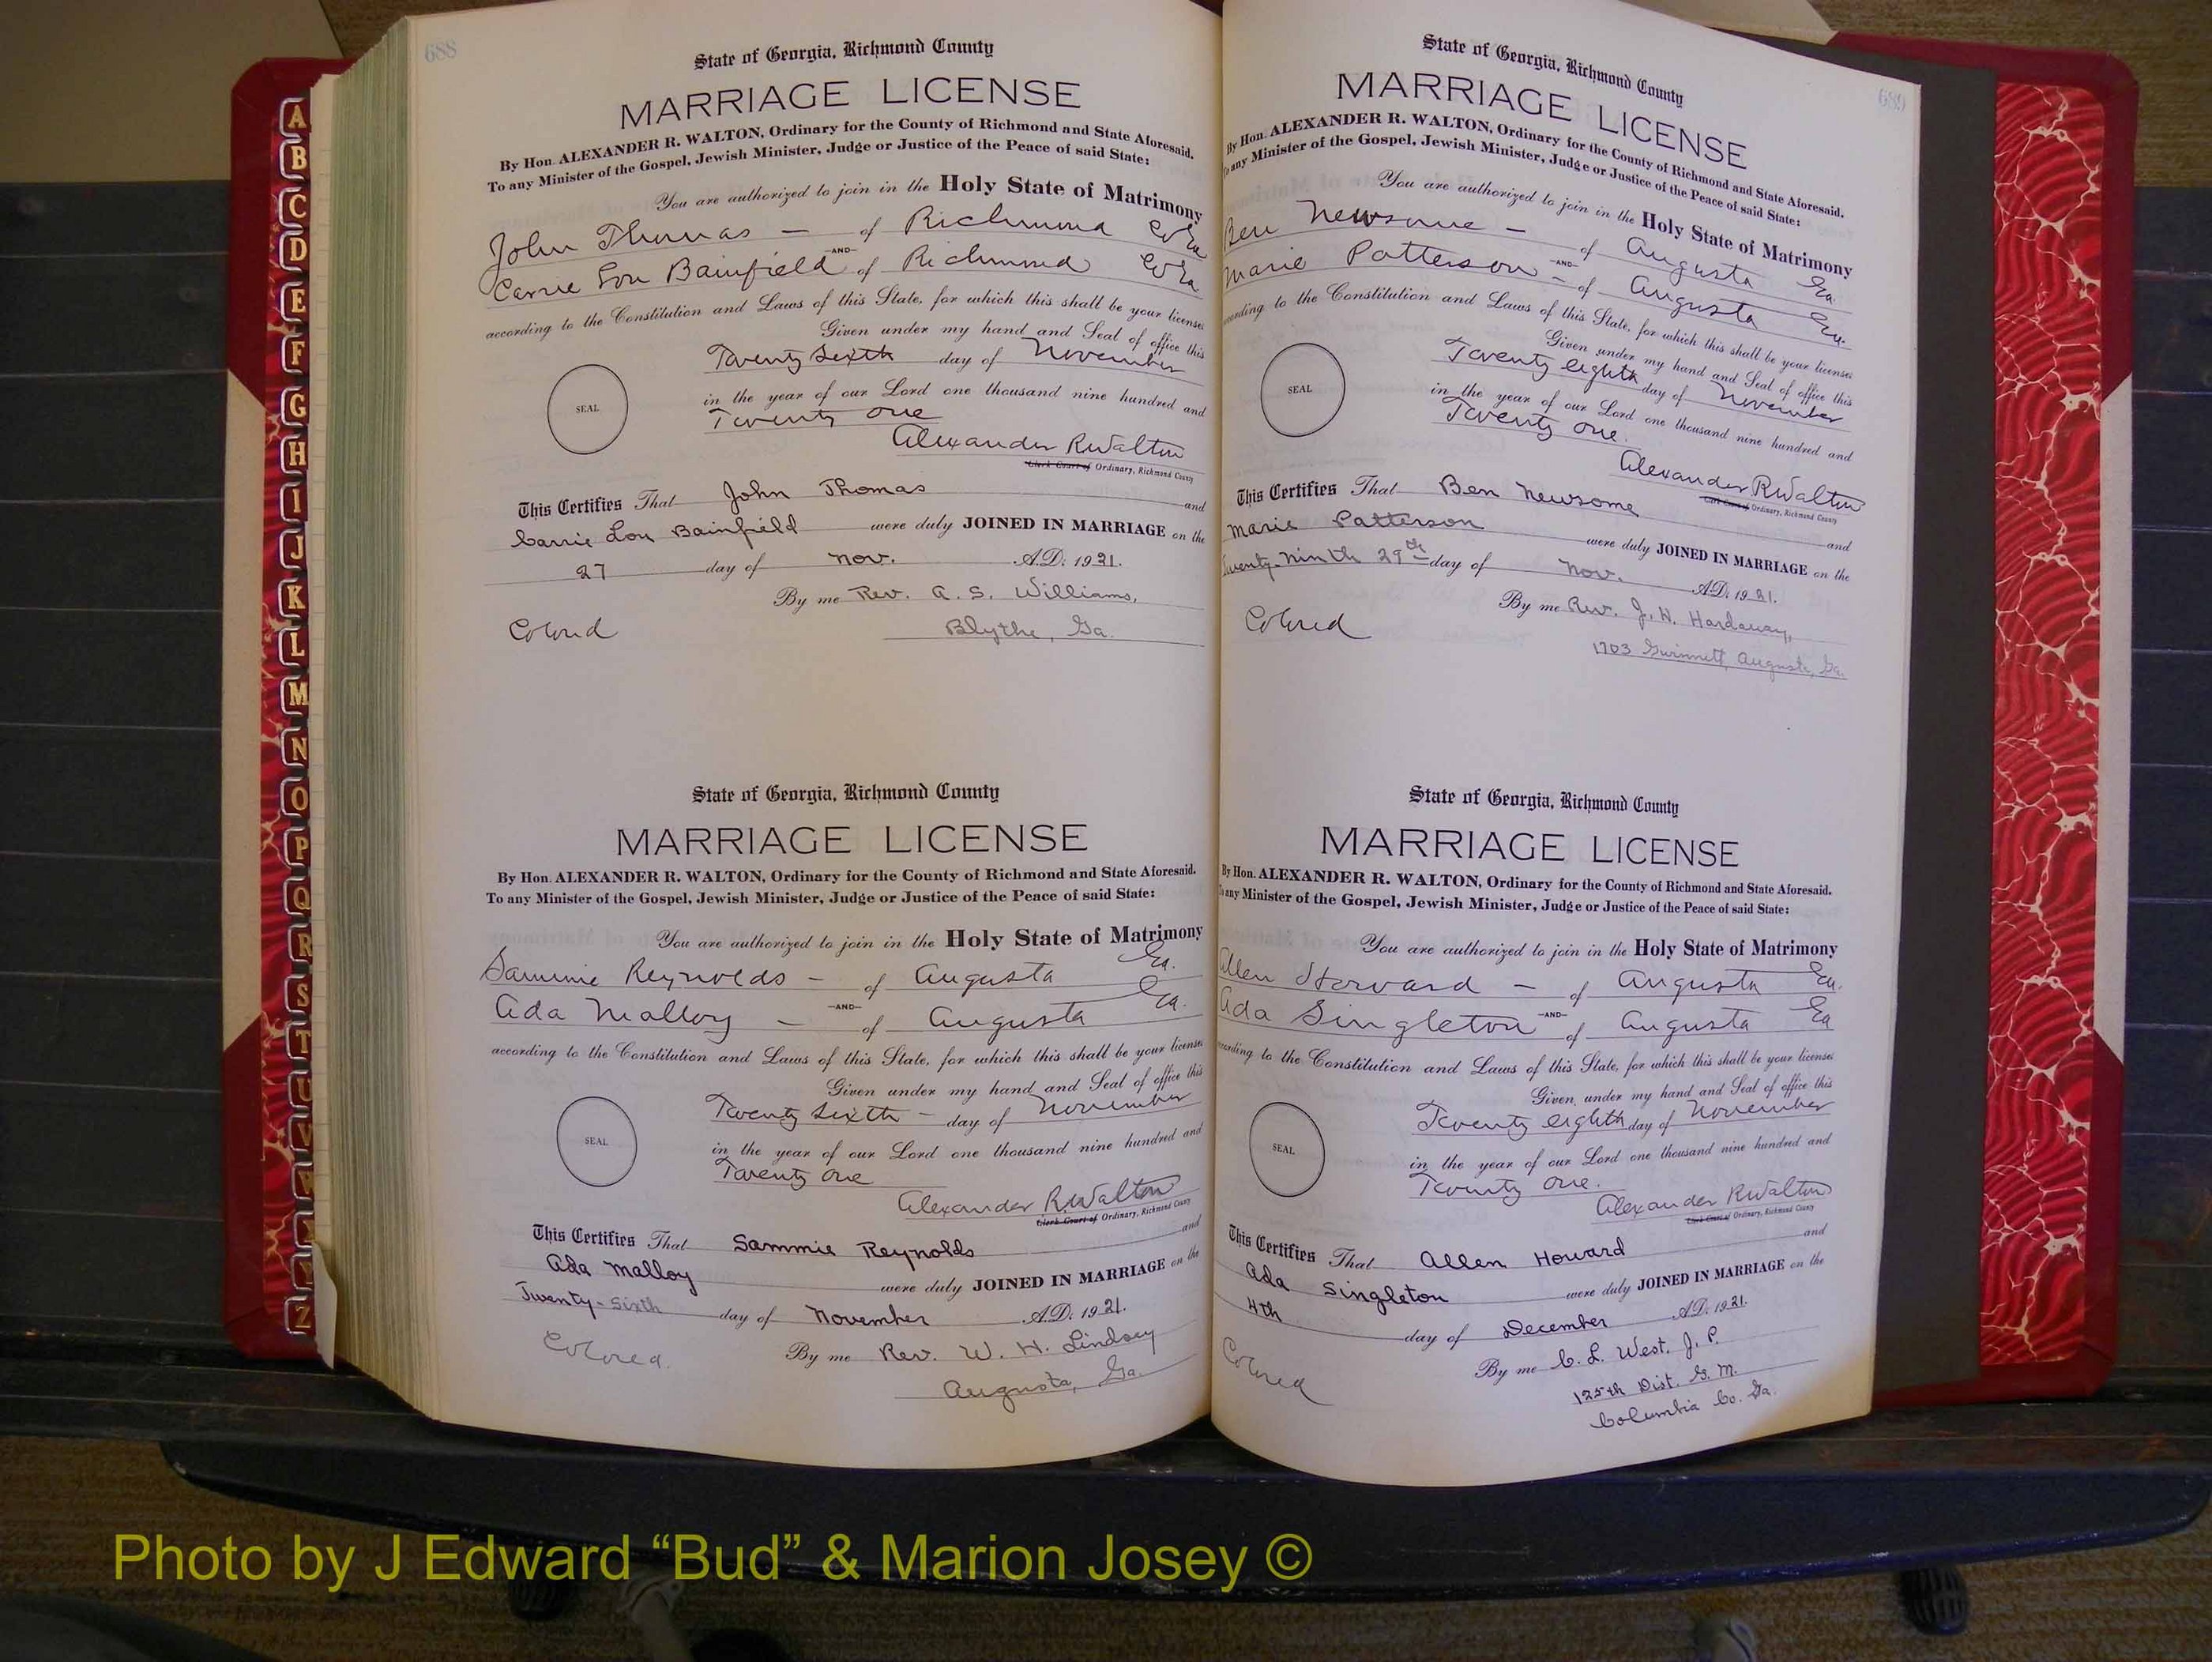 A
B
C
D
E
F
G
H
I
J
K
L
M
N
O
P
Q
R
S
T
U
V
W
Z
688
State of Georgia, Richmond County
MARRIAGE LICENSE
By Hon. ALEXANDER R. WALTON, Ordinary for the County of Richmond and State Aforesaid.
To any Minister of the Gospel, Jewish Minister, Judge or Justice of the Peace of said State:
You are authorized to join in the Holy State of Matrimony
John Thomas — of Richmond Co Ga
—AND—
Carrie Lou Bainfield of Richmond Co Ga
according to the Constitution and Laws of this State, for which this shall be your license
Given under my hand and Seal of office this
Twenty Sixth day of November
in the year of our Lord one thousand nine hundred and
Twenty One
SEAL
Alexander R Walton
Clerk Court of Ordinary, Richmond County
This Certifies That John Thomas and
Carrie Lou Bainfield were duly JOINED IN MARRIAGE on the
27 day of Nov. A.D. 1921.
By me Rev. A. S. Williams,
Colored Blythe, Ga.
State of Georgia, Richmond County
MARRIAGE LICENSE
By Hon. ALEXANDER R. WALTON, Ordinary for the County of Richmond and State Aforesaid.
To any Minister of the Gospel, Jewish Minister, Judge or Justice of the Peace of said State:
You are authorized to join in the Holy State of Matrimony
Sammie Reynolds — of Augusta Ga.
—AND—
Ada Malloy — of Augusta Ga.
according to the Constitution and Laws of this State, for which this shall be your license
Given under my hand and Seal of office this
Twenty Sixth — day of November
in the year of our Lord one thousand nine hundred and
Twenty One
SEAL
Alexander R. Walton
Clerk Court of Ordinary, Richmond County
This Certifies That Sammie Reynolds and
Ada Malloy were duly JOINED IN MARRIAGE on the
Twenty-Sixth day of November A.D. 1921.
By me Rev. W. H. Lindsey
Colored. Augusta, Ga.
689
State of Georgia, Richmond County
MARRIAGE LICENSE
By Hon. ALEXANDER R. WALTON, Ordinary for the County of Richmond and State Aforesaid.
To any Minister of the Gospel, Jewish Minister, Judge or Justice of the Peace of said State:
You are authorized to join in the Holy State of Matrimony
Ben Newsome — of Augusta Ga.
—AND—
Marie Patterson — of Augusta Ga.
according to the Constitution and Laws of this State, for which this shall be your license
Given under my hand and Seal of office this
Twenty eighth day of November
in the year of our Lord one thousand nine hundred and
Twenty One.
SEAL
Alexander R Walton
Clerk Court of Ordinary, Richmond County
This Certifies That Ben Newsome and
Marie Patterson were duly JOINED IN MARRIAGE on the
Twenty-Ninth 29th day of Nov. A.D. 1921.
By me Rev. J. H. Hardaway,
Colored 1703 Gwinnett, Augusta, Ga.
State of Georgia, Richmond County
MARRIAGE LICENSE
By Hon. ALEXANDER R. WALTON, Ordinary for the County of Richmond and State Aforesaid.
To any Minister of the Gospel, Jewish Minister, Judge or Justice of the Peace of said State:
You are authorized to join in the Holy State of Matrimony
Allen Howard — of Augusta Ga.
—AND—
Ada Singleton of Augusta Ga
according to the Constitution and Laws of this State, for which this shall be your license
Given under my hand and Seal of office this
Twenty eighth day of November
in the year of our Lord one thousand nine hundred and
Twenty One.
SEAL
Alexander R Walton
Clerk Court of Ordinary, Richmond County
This Certifies That Allen Howard and
Ada Singleton were duly JOINED IN MARRIAGE on the
4th day of December A.D. 1921.
By me C. L. West, J. P.
Colored 125th Dist. G. M.
Columbia Co. Ga.
Photo by J Edward “Bud” & Marion Josey ©